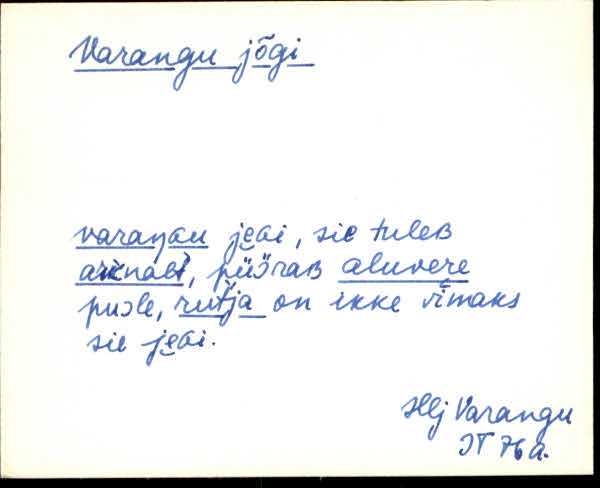 Varangu jõgi
varaŋɢu je̮ɢi, sie tuleʙ
arknalt, püöraʙ aluvere
puole, rutja on ikke viimaks
sie je̮ɢi.
Hlj Varangu
JT 76 a.